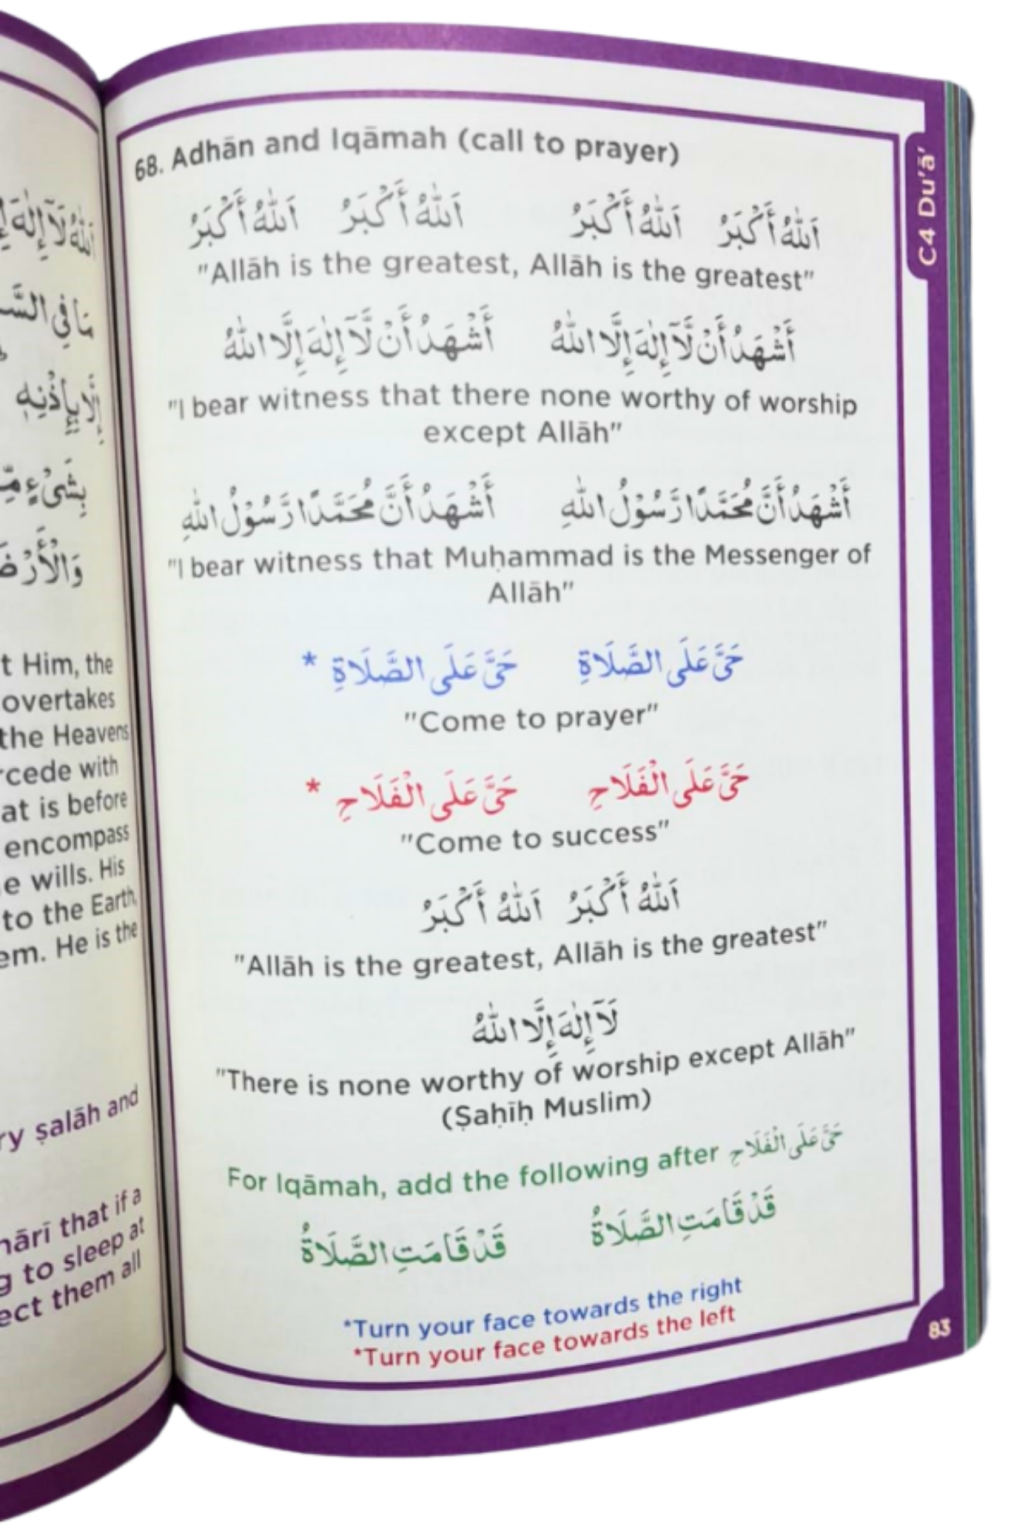 اَللّٰهُ لَآ إِلٰهَ
مَا فِي
إِلَّا بِإِذْنِهٖ
بِشَيْءٍ
t Him, the
overtakes
the Heavens
cede with
at is before
encompass
e wills. His
to the Earth,
em. He is the
ry ṣalāh and
hārī that if a
g to sleep at
ect them all
68. Adhān and Iqāmah (call to prayer)
اَللّٰهُ أَكْبَرُ اَللّٰهُ أَكْبَرُ اَللّٰهُ أَكْبَرُ اَللّٰهُ أَكْبَرُ
"Allāh is the greatest, Allāh is the greatest"
أَشْهَدُ أَنْ لَّآ إِلٰهَ إِلَّا اللّٰهُ أَشْهَدُ أَنْ لَّآ إِلٰهَ إِلَّا اللّٰهُ
"I bear witness that there none worthy of worship
except Allāh"
أَشْهَدُ أَنَّ مُحَمَّدًا رَّسُوْلُ اللّٰهِ أَشْهَدُ أَنَّ مُحَمَّدًا رَّسُوْلُ اللّٰهِ
"I bear witness that Muḥammad is the Messenger of
Allāh"
حَيَّ عَلَى الصَّلَاةِ حَيَّ عَلَى الصَّلَاةِ *
"Come to prayer"
حَيَّ عَلَى الْفَلَاحِ حَيَّ عَلَى الْفَلَاحِ *
"Come to success"
اَللّٰهُ أَكْبَرُ اَللّٰهُ أَكْبَرُ
"Allāh is the greatest, Allāh is the greatest"
لَآ إِلٰهَ إِلَّا اللّٰهُ
"There is none worthy of worship except Allāh"
(Ṣaḥīḥ Muslim)
For Iqāmah, add the following after حَيَّ عَلَى الْفَلَاحِ
قَدْ قَامَتِ الصَّلَاةُ قَدْ قَامَتِ الصَّلَاةُ
*Turn your face towards the right
*Turn your face towards the left
C4 Du'ā'
83